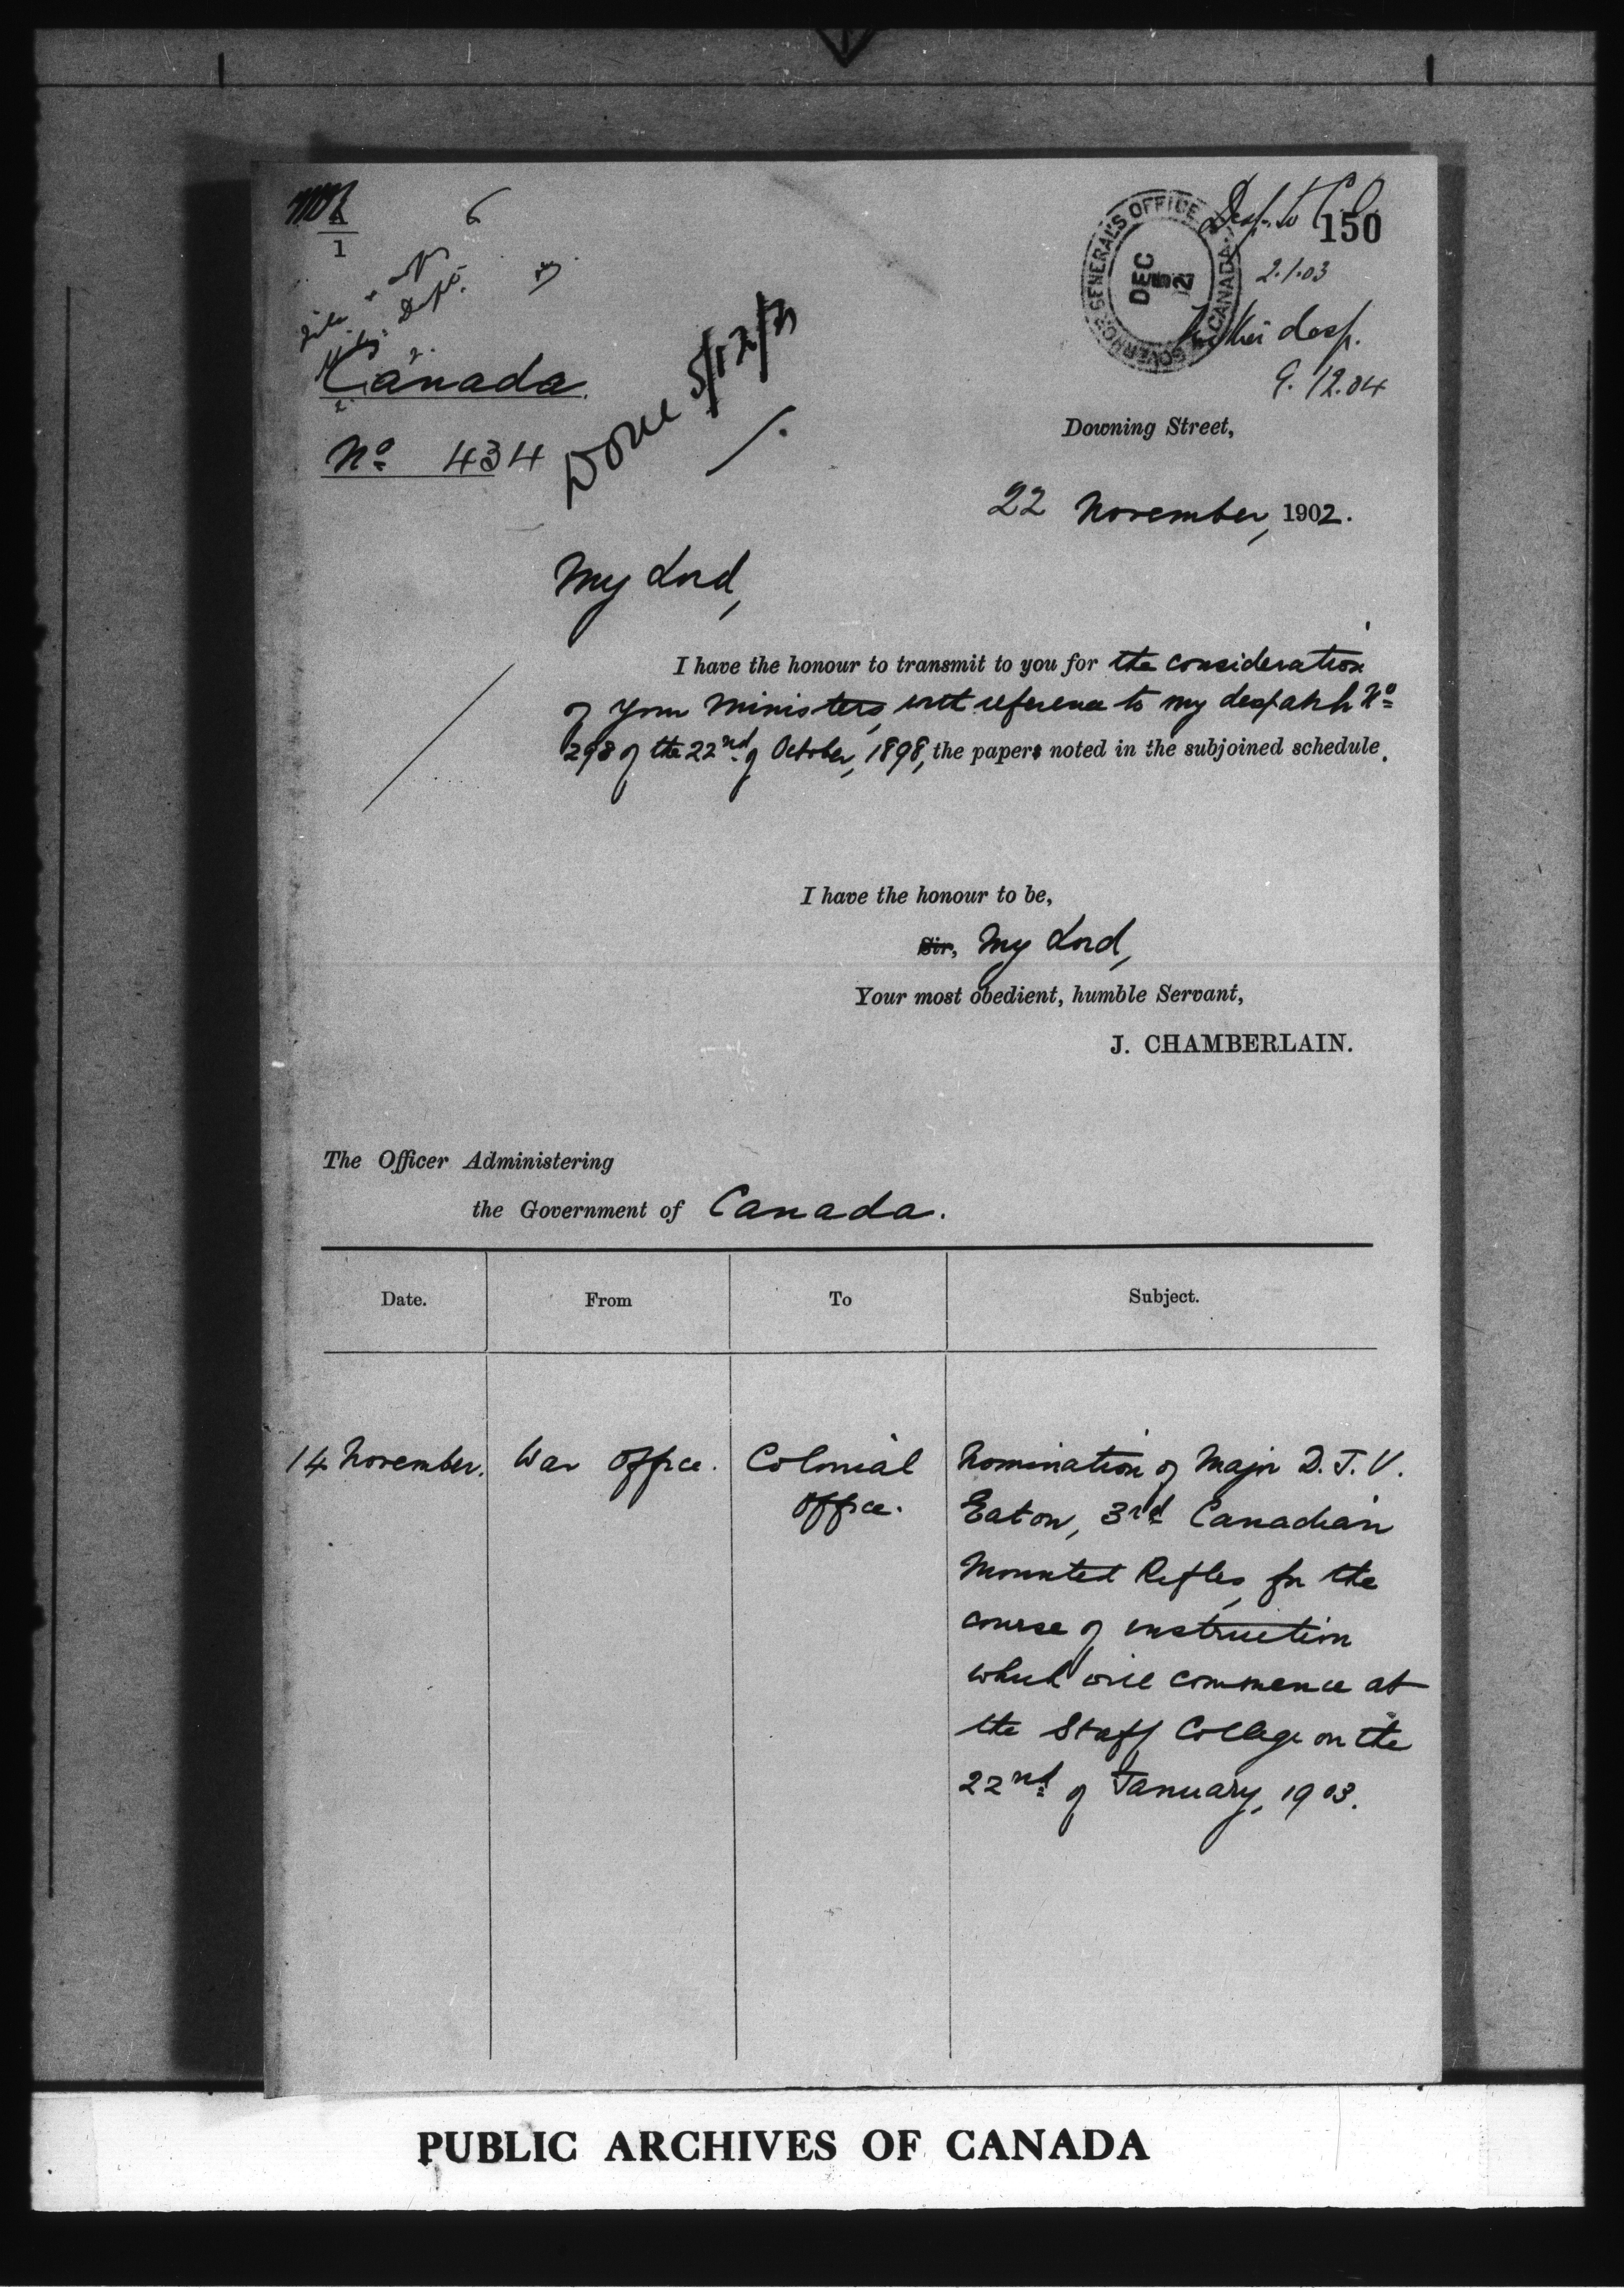 6
1
Desp. to C.O.
150
2.1.03
GOVERNOR GENERAL'S OFFICE
CANADA
DEC
5
desp.
9.12.04
Dept.
Canada.
Nº 434
Done 5/12/2
Downing Street,
22 November, 1902.
My Lord,
I have the honour to transmit to you for the consideration
of your Ministers, with reference to my despatch Nº
298 of the 22nd of October, 1898, the papers noted in the subjoined schedule.
I have the honour to be,
Sir, My Lord,
Your most obedient, humble Servant,
J. CHAMBERLAIN.
The Officer Administering
the Government of Canada.
Date. From To Subject.
14 November. War Office. Colonial Nomination of Major D.J.V.
Office. Eaton, 3rd Canadian
Mounted Rifles, for the
course of instruction
which will commence at
the Staff College on the
22nd of January, 1903.
PUBLIC ARCHIVES OF CANADA